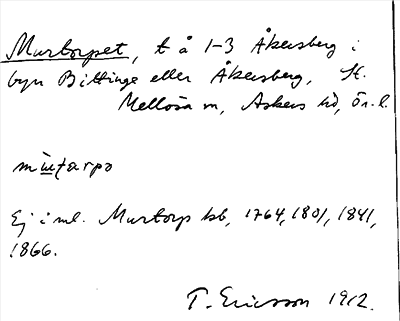 Murtorpet, t å 1-3 Åkersberg i
byn Bittinge eller Åkersberg, St.
Mellösa sn, Askers hd, Ör. l.
Ej i ml. Murtorp kb, 1764, 1801, 1841,
1866.
T. Ericsson 1912.